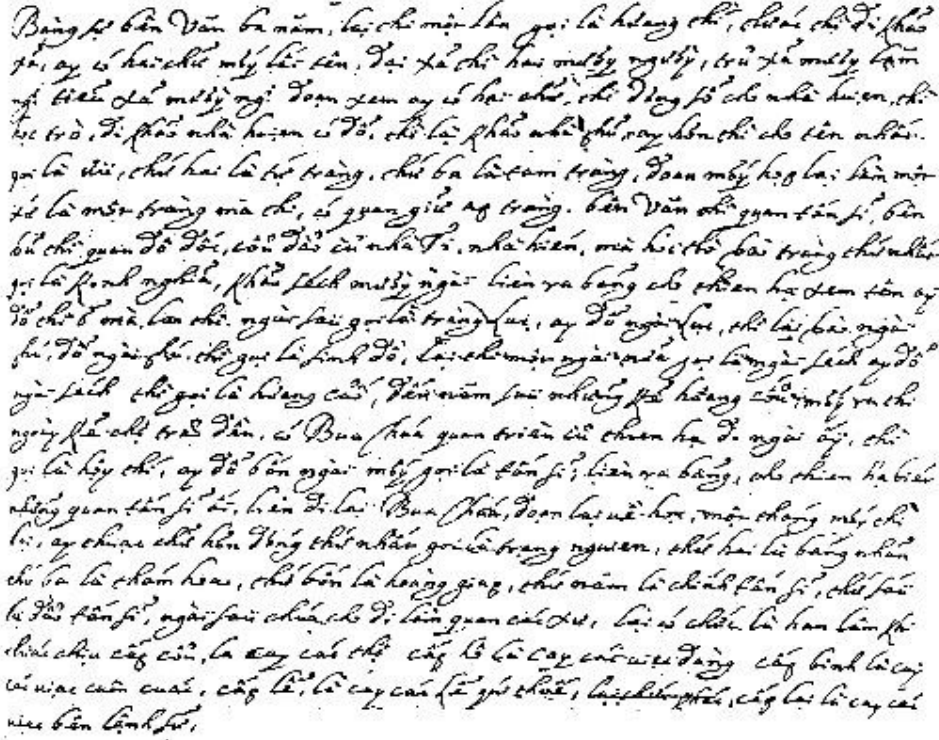 Bang sự bên Văn ba năm, lại thi một lần gọi là hương thi, chước thi đi khảo
xã, ay có hai chữ mấy lấy tên, đại xã thì hai mươy người, trũ xã mươy lăm
ng tiểu xã mươy ng doạn xem ay có hai chữ, thì dâng sổ cho nhà huien, thì
học trò, đi khảo nhà huien có đổ, thì lại khảo nhà phủ, ray hơn thì cho tên nhất
gọi là , thứ hai là tứ tràng, thứ ba là tam tràng, đoạn mấy họp lại làm một
xứ là một tràng mà thi, có quan giữ ap tràng. bên Văn thì quan tấn sĩ, bên
bũ thì quan đô đốc, cũ nhà Ti, nhà hiến, mà học trò bào tràng thứ nhất
gọi là kinh nghĩa, khảo sách mươy ngài liền ra bảng cho thien hạ xem tên ay
đổ thì ở mà lan thi. ngài sau gọi là tràng lục, ay đổ ngài lục, thì lại bào ngài
phú, đổ ngài phú thì gọi là sinh đồ, lại thi một ngài nữa gọi là ngài sách ay đổ
ngài sách thì gọi là hương cấu, đến năm sau những kẻ hương cấu mấy ra thi
ngoày kẻ chợ trão dân, có Bua Chúa quan triều cũ thien hạ đ ngài ấy, thì
gọi là hội thi, ay đổ bốn ngài mấy gọi là tấn sĩ, liền ra bảng, cho thien hạ biết
những quan tấn sĩ ấy, liền đi lại Bua Chúa, đoạn lại uề học, một tháng mấy thi
lại, ay thuộc chữ hơn đấng thứ nhất gọi là trạng nguien, thứ hai là bảng nhãn
thứ ba là thám hoa, thứ bốn là hoàng giap, thứ năm là chính tấn sĩ, thứ sáu
là đào tấn sĩ, ngài sau chúa cho đi làm quan các xứ, lại có chức là han lâm thì
chiu cấp cũ, la cay các thợ cấp hô là cay các uiec dâng cấp binh là cay
các uiạc cuên cuác, cấp lễ, là cay các lễ quí thuế, , cấp lại là cay các
uiec bên lệnh sử,